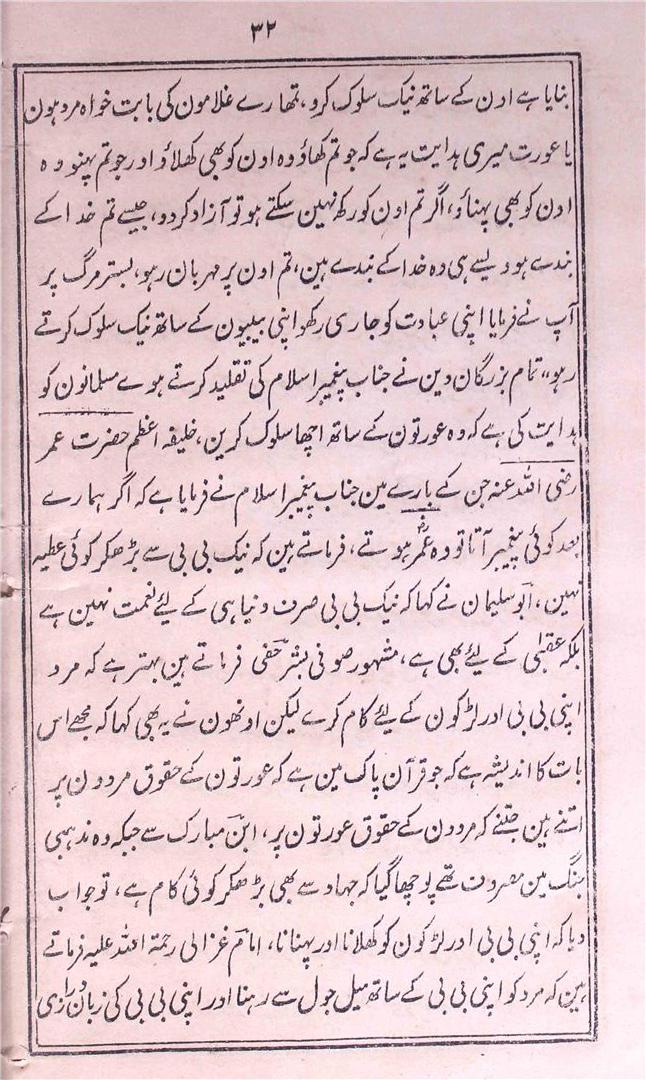 ۳۲
بنایا ہے اون کے ساتھ نیک سلوک کرو، تمھارے غلامون کی بابت خواہ مرد ہون
یا عورت میری ہدایت یہ ہے کہ جو تم کھاؤ وہ اون کو بھی کھلاؤ اور جو تم پہنو وہ
اون کو بھی پہناؤ، اگر تم اون کو رکھ نہین سکتے ہو تو آزاد کردو، جیسے تم خدا کے
بندے ہو ویسے ہی وہ خدا کے بندے ہین، تم اون پر مہربان رہو، بستر مرگ پر
آپ نے فرمایا اپنی عبادت کو جاری رکھو اپنی بیبیون کے ساتھ نیک سلوک کرتے
رہو،، تمام بزرگان دین نے جناب پیغمبر اسلام کی تقلید کرتے ہوے مسلمانون کو
ہدایت کی ہے کہ وہ عورتون کے ساتھ اچھا سلوک کرین، خلیفہ اعظم حضرت عمر
رضی اللہ عنہ جن کے بارے مین جناب پیغمبر اسلام نے فرمایا ہے کہ اگر ہمارے
بعد کوئی پیغمبر آتا تو وہ عمرؓ ہوتے، فرماتے ہین کہ نیک بی بی سے بڑھکر کوئی عطیہ
نہین، ابو سلیمان نے کہا کہ نیک بی بی صرف دنیا ہی کے لئے نعمت نہین ہے
بلکہ عقبیٰ کے لیئے بھی ہے، مشہور صوفی بشر حفی فرماتے ہین بہتر ہے کہ مرد
اپنی بی بی اور لڑکون کے لیئے کام کرے لیکن اونھون نے یہ بھی کہا کہ مجھے اس
بات کا اندیشہ ہے کہ جو قرآن پاک مین ہے کہ عورتون کے حقوق مردون پر
اتنے ہین جتنے کہ مردون کے حقوق عورتون پر، ابن مبارک سے جبکہ وہ مذہبی
جنگ مین مصروف تھے پوچھا گیا کہ جہاد سے بھی بڑھکر کوئی کام ہے، تو جواب
دیا کہ اپنی بی بی اور لڑکون کو کھلانا اور پہنانا، امام غزالی رحمۃ اللہ علیہ فرماتے
ہین کہ مرد کو اپنی بی بی کے ساتھ میل جول سے رہنا اور اپنی بی بی کی زبان درازی